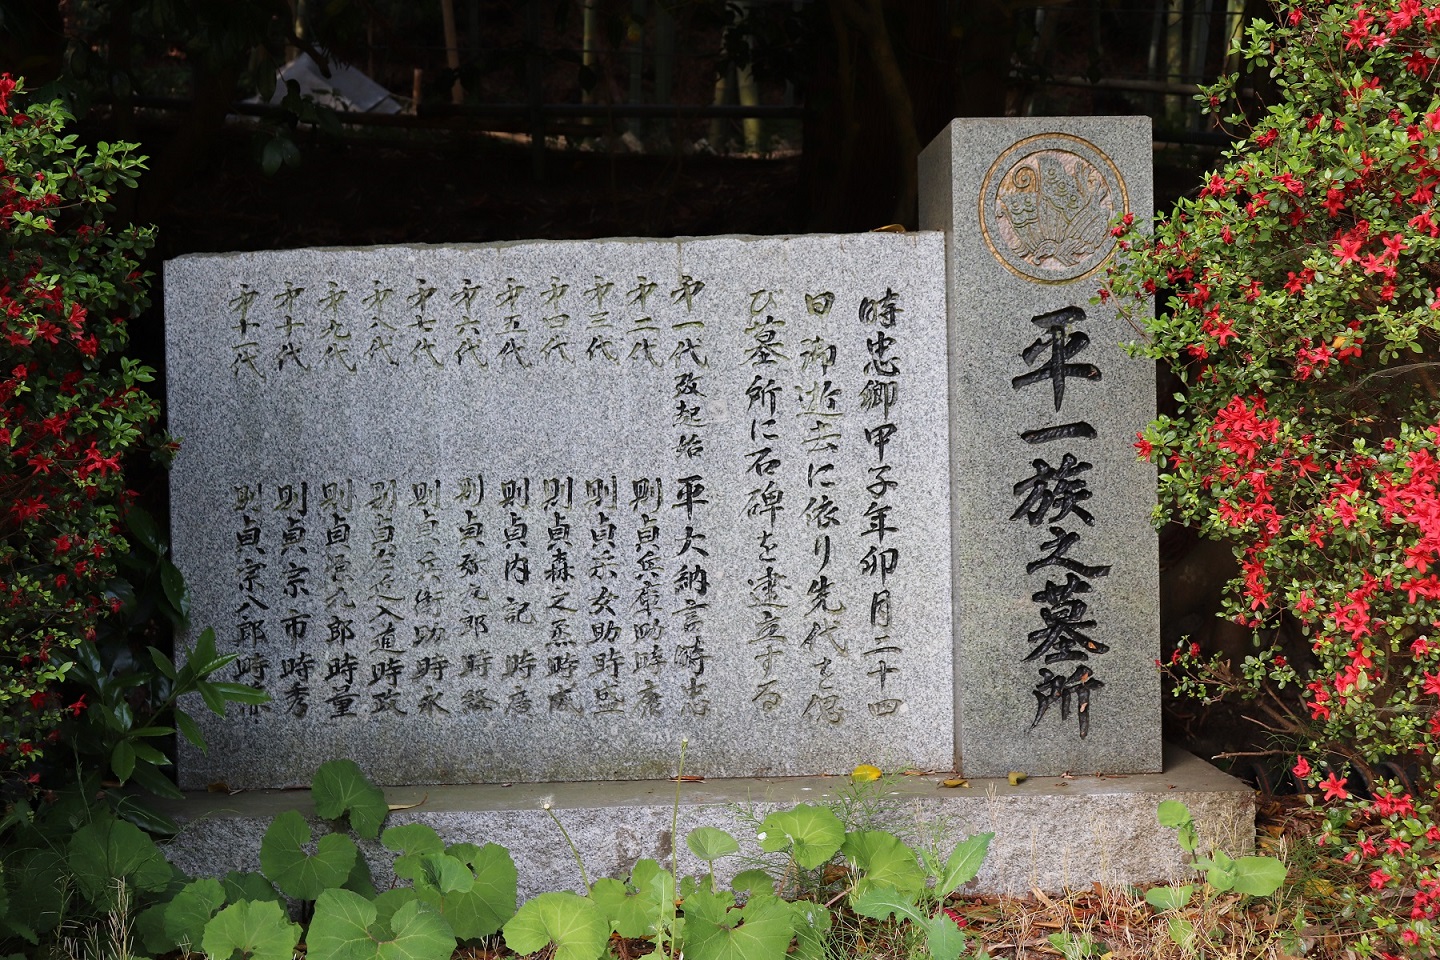 平一族之墓所
時忠卿甲子年卯月二十四
日御逝去に依り先代を偲
び墓所に石碑を建立する
第一代 致起始 平大納言時忠
第二代 則貞兵庫助時康
第三代 則貞兵女助時盛
第四代 則貞森之烝時成
第五代 則貞内記時
第六代 則貞弥九郎時
第七代 則貞兵衛助時永
第八代 則貞入道時政
第九代 則貞九郎時量
第十代 則貞宗市時秀
第十一代 則貞宗八郎時